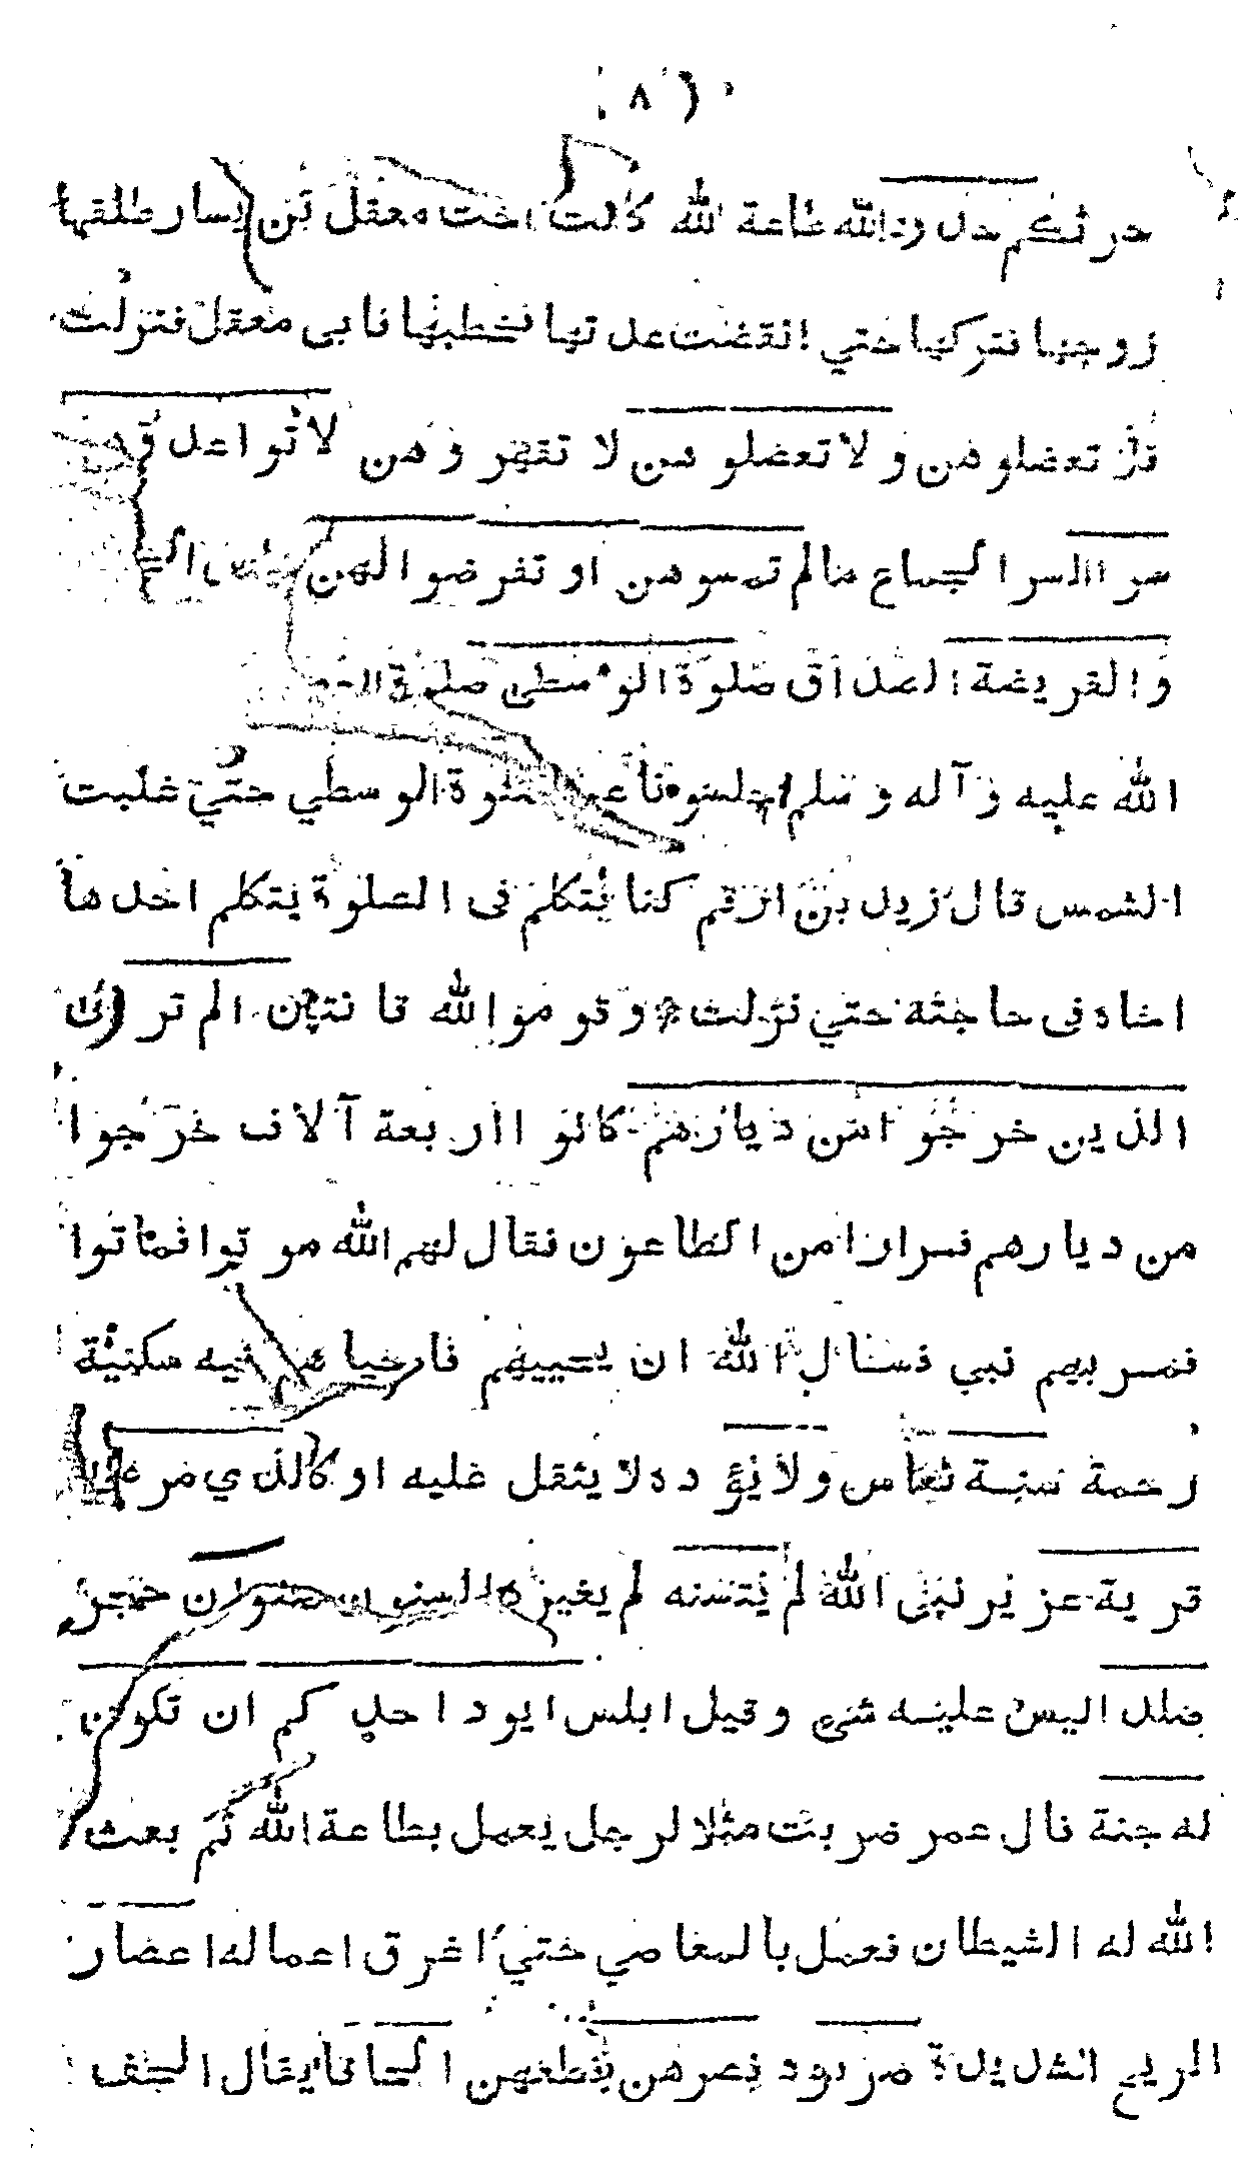 ( ٨ )
حرثكم حدودالله طاعة الله كانت اخت معقل بن يسار طلقها
زوجها فتركها حتي انقضت عدتها فخطبها فابى معقل فنزلت
فلا تعضلوهن ولا تعضلوهن لا تقهروهن لا تواعدوهن
سرا السر الجماع مالم تمسوهن او تفرضوا لهن
والفريضة الصداق صلوة الوسطى صلوة
الله عليه وآله وسلم حبسونا عن الصلوة الوسطي حتي غابت
الشمس قال زيد بن ارقم كنا نتكلم فى الصلوة يتكلم احدها
اخاه فى حاجته حتي نزلت وقوموا لله قانتين الم تر الى
الذين خرجوا من ديارهم كانوا اربعة آلاف خرجوا
من ديارهم فرارا من الطاعون فقال لهم الله موتوا فماتوا
فمر بهم نبي فسال الله ان يحييهم فاحياهم فيه سكينة
رحمة سنة نعاس ولا يؤده لا يثقل عليه او كالذي مر على
قرية عزير نبي الله لم يتسنه لم يغيره السنون صفوان حجر
صلدا ليس عليه شئ وقيل ابلس ايود احدكم ان تكون
له جنة قال عمر ضربت مثلا لرجل يعمل بطاعة الله ثم بعث
الله له الشيطان فعمل بالمعاصي حتي اغرق اعماله اعصار
الريح الشديدة فصرهن قطعهن الحافا يقال الحف